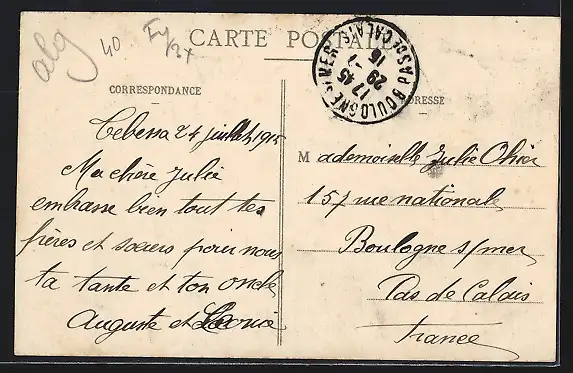 alg
40
CARTE POSTALE
BOULOGNE S MER PAS DE CALAIS
17 45
29 -7
15
CORRESPONDANCE
ADRESSE
Tebessa 24 juillet 1915
Ma chère Julie
embrasse bien tout tes
frères et soeurs pour nous
ta tante et ton oncle
Auguste et Léonie
Mademoiselle Julie
157 rue nationale
Boulogne s/mer
Pas de Calais
France